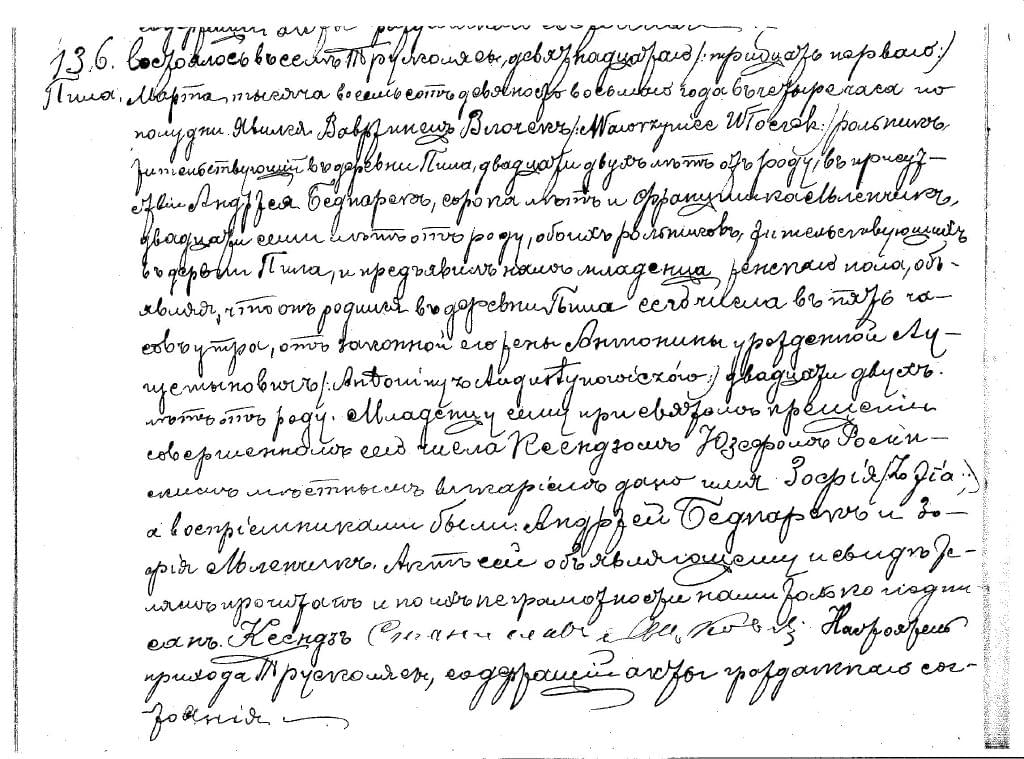 содержащий акты гражданскаго состоянія
136. Состоялось въ селѣ Трусколясы, девятнадцатаго /: тридцать перваго:/
Пила. Марта тысяча восемьсотъ девяностo восьмаго года въ четыре часа по
полудни. Явился Вавржинецъ Влочекъ /: Wawrzyniec Włoczek:/ рольникъ,
жительствующій въ деревни Пила, двадцати двухъ лѣтъ отъ роду, въ присут-
ствіи Андржея Беднарекъ, сорока лѣтъ и Францишка Мленчикъ,
двадцати семи лѣтъ отъ роду, обоихъ рольниковъ, жительствующихъ
въ деревни Пила, и предъявилъ намъ младенца женскаго пола, объ-
являя, что онъ родился въ деревни Пила сего числа въ пять ча-
совъ утра, отъ законной его жены Антонины урожденной Ау-
густыновичъ /: Antoniny z Augustynowiczów:/ двадцати двухъ
лѣтъ отъ роду. Младенцу сему при святомъ крещеніи
совершенномъ сего числа Ксендзомъ Юзефомъ
мѣстнымъ викаріемъ дано имя Зофія /: Zofia:/
а воспріемниками были: Андржей Беднарекъ и Зо-
фія Мленчикъ. Актъ сей объявляющему и свидѣте-
лямъ прочитанъ и по ихъ неграмотности нами только подпи-
санъ. Ксендзъ Станиславъ Настоятель
прихода Трусколясы, содержащій акты гражданскаго сос-
тоянія